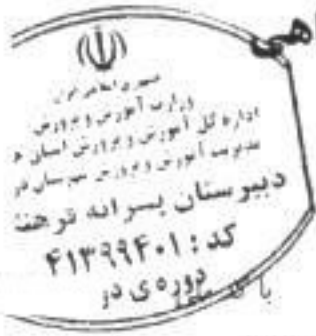 جمهوری اسلامی ایران
وزارت آموزش و پرورش
اداره کل آموزش و پرورش استان
مدیریت آموزش و پرورش شهرستان
دبیرستان پسرانه
کد : ۴۱۳۹۹۴۰۱
دوره ی در
با